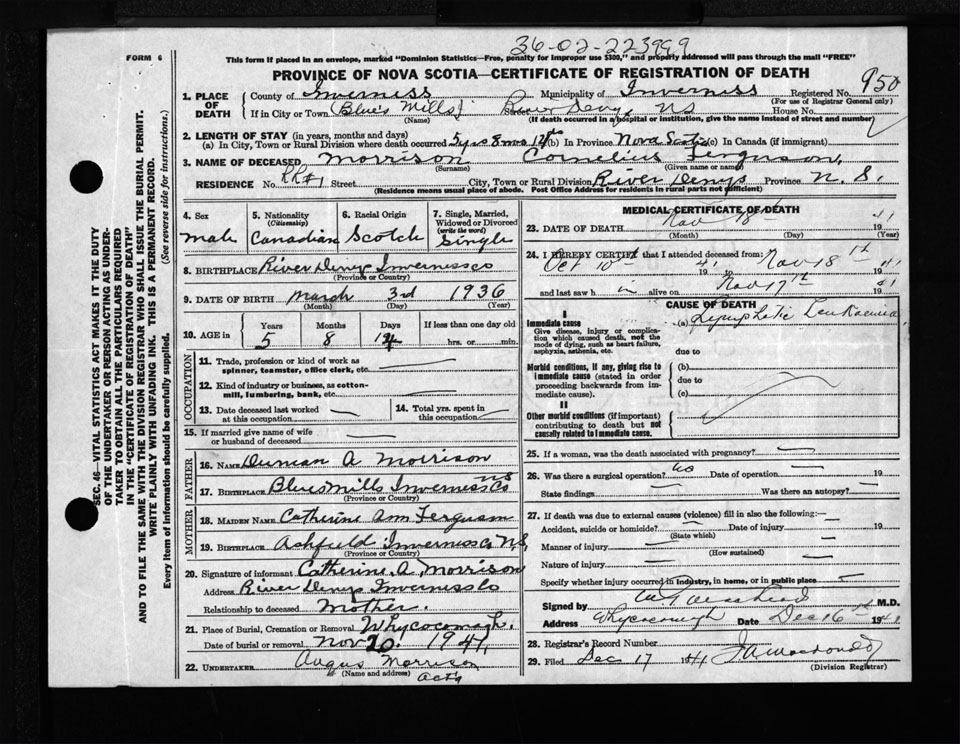 36-02-223999
FORM 6
This form if placed in an envelope, marked "Dominion Statistics—Free, penalty for improper use $300," and properly addressed will pass through the mail "FREE"
PROVINCE OF NOVA SCOTIA—CERTIFICATE OF REGISTRATION OF DEATH
SEC. 46—VITAL STATISTICS ACT MAKES IT THE DUTY
OF THE UNDERTAKER OR PERSON ACTING AS UNDER-
TAKER TO OBTAIN ALL THE PARTICULARS REQUIRED
IN THE "CERTIFICATE OF REGISTRATION OF DEATH"
AND TO FILE THE SAME WITH THE DIVISION REGISTRAR WHO SHALL ISSUE THE BURIAL PERMIT.
WRITE PLAINLY WITH UNFADING INK. THIS IS A PERMANENT RECORD.
Every item of information should be carefully supplied. (See reverse side for instructions.)
1. PLACE OF DEATH
County of Inverness Municipality of Inverness Registered No. 950
(For use of Registrar General only)
If in City or Town (Blue's Mills) River Denys NS House No.
(Name) (If death occurred in a hospital or institution, give its name instead of street and number)
2. LENGTH OF STAY (in years, months and days)
(a) In City, Town or Rural Division where death occurred 5 yrs 8 mos 14 ds (b) In Province Nova Scotia (c) In Canada (if immigrant)
3. NAME OF DECEASED Morrison Cornelius Ferguson
(Surname) (Given name or names)
RESIDENCE No. RR#1 Street City, Town or Rural Division River Denys Province N.S.
(Residence means usual place of abode. Post Office Address for residents in rural parts not sufficient)
4. Sex 5. Nationality (Citizenship) 6. Racial Origin 7. Single, Married, Widowed or Divorced (write the word)
Male Canadian Scotch Single
8. BIRTHPLACE River Denys Inverness Co
(Province or Country)
9. DATE OF BIRTH March 3rd 1936
(Month) (Day) (Year)
10. AGE in Years Months Days If less than one day old
5 8 14 hrs. or min.
OCCUPATION
11. Trade, profession or kind of work as
spinner, teamster, office clerk, etc.
12. Kind of industry or business, as cotton-
mill, lumbering, bank, etc.
13. Date deceased last worked
at this occupation
14. Total yrs. spent in
this occupation
15. If married give name of wife
or husband of deceased
FATHER
16. NAME Duncan A Morrison
17. BIRTHPLACE Blues Mills Inverness Co NS
(Province or Country)
MOTHER
18. MAIDEN NAME Catherine Ann Ferguson
19. BIRTHPLACE Ashfield Inverness Co, N.S.
(Province or Country)
20. Signature of informant Catherine A. Morrison
Address River Denys Inverness Co
Relationship to deceased Mother.
21. Place of Burial, Cremation or Removal Whycocomagh.
Date of burial or removal Nov 20 1941
22. UNDERTAKER Angus Morrison
(Name and address)
Actg
MEDICAL CERTIFICATE OF DEATH
23. DATE OF DEATH Nov 18th 41
(Month) (Day) (Year)
24. I HEREBY CERTIFY that I attended deceased from:
Oct 10th 1941 to Nov 18th 1941
and last saw h im alive on Nov 17th 1941
CAUSE OF DEATH
I
Immediate cause
Give disease, injury or complica-
tion which caused death, not the
mode of dying, such as heart failure,
asphyxia, asthenia, etc.
(a) Lymphatic Leukaemia
due to
Morbid conditions, if any, giving rise to
immediate cause (stated in order
proceeding backwards from im-
mediate cause).
(b)
due to
(c)
II
Other morbid conditions (if important)
contributing to death but not
causally related to immediate cause.
25. If a woman, was the death associated with pregnancy?
26. Was there a surgical operation? No Date of operation 19
State findings Was there an autopsy?
27. If death was due to external causes (violence) fill in also the following:
Accident, suicide or homicide? Date of injury 19
(State which)
Manner of injury
(How sustained)
Nature of injury
Specify whether injury occurred in industry, in home, or in public place
Signed by M.D.
Address Whycocomagh Date Dec 16th 1941
28. Registrar's Record Number
29. Filed Dec 17 1941 J A Macdonald
(Division Registrar)